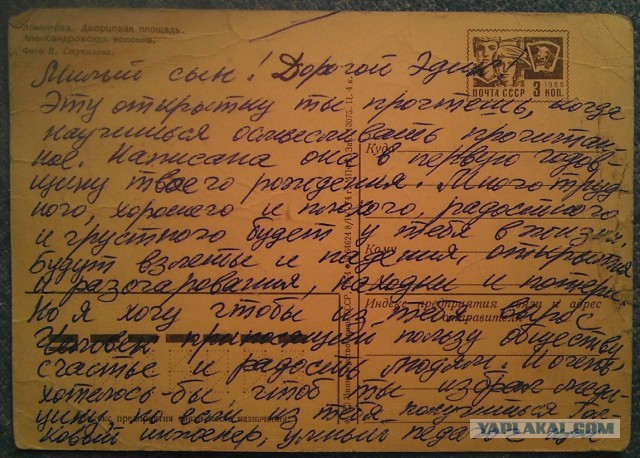 Ленинград. Дворцовая площадь.
Александровская колонна.
Фото В. Стукалова
ПОЧТА СССР 3 КОП.
1966
Милый сын! Дорогой Эдик!
Эту открытку ты прочтешь, когда
научишься осмысливать прочитан-
ное. Написана она в первую годов
щину твоего рождения. Много труд-
ного, хорошего и плохого, радостного
и грустного будет у тебя в жизни.
Будут взлеты и падения, открытия
и разочарования, находки и потери.
Но я хочу чтобы из тебя вырос
человек приносящий пользу обществу
счастье и радость людям. И очень
хотелось-бы, чтоб ты избрал меди-
цину, но если из тебя получиться тол-
ковый инженер, умный педагог
Куда
Кому
Индекс предприятия связи и адрес
отправителя
Индекс предприятия связи места назначения
YAPLAKAL.COM